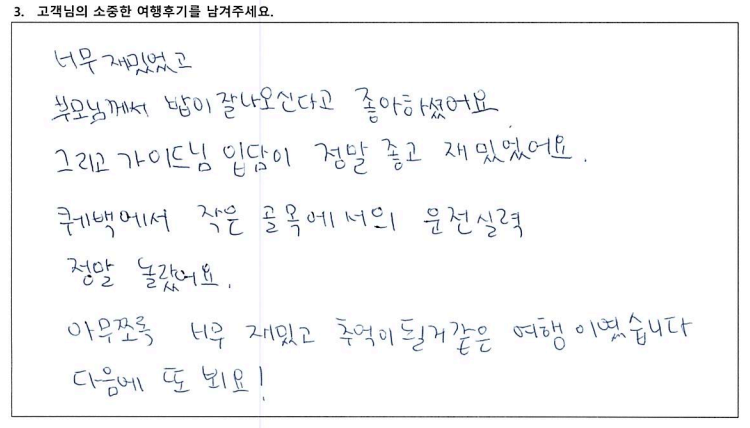 3. 고객님의 소중한 여행후기를 남겨주세요.
너무 재밌었고
부모님께서 밥이 잘나오신다고 좋아하셨어요
그리고 가이드님 입담이 정말 좋고 재밌었어요.
퀘백에서 작은 골목에서의 운전실력
정말 놀랐어요.
아무쪼록 너무 재밌고 추억이 될거같은 여행이였습니다
다음에 또 뵈요!